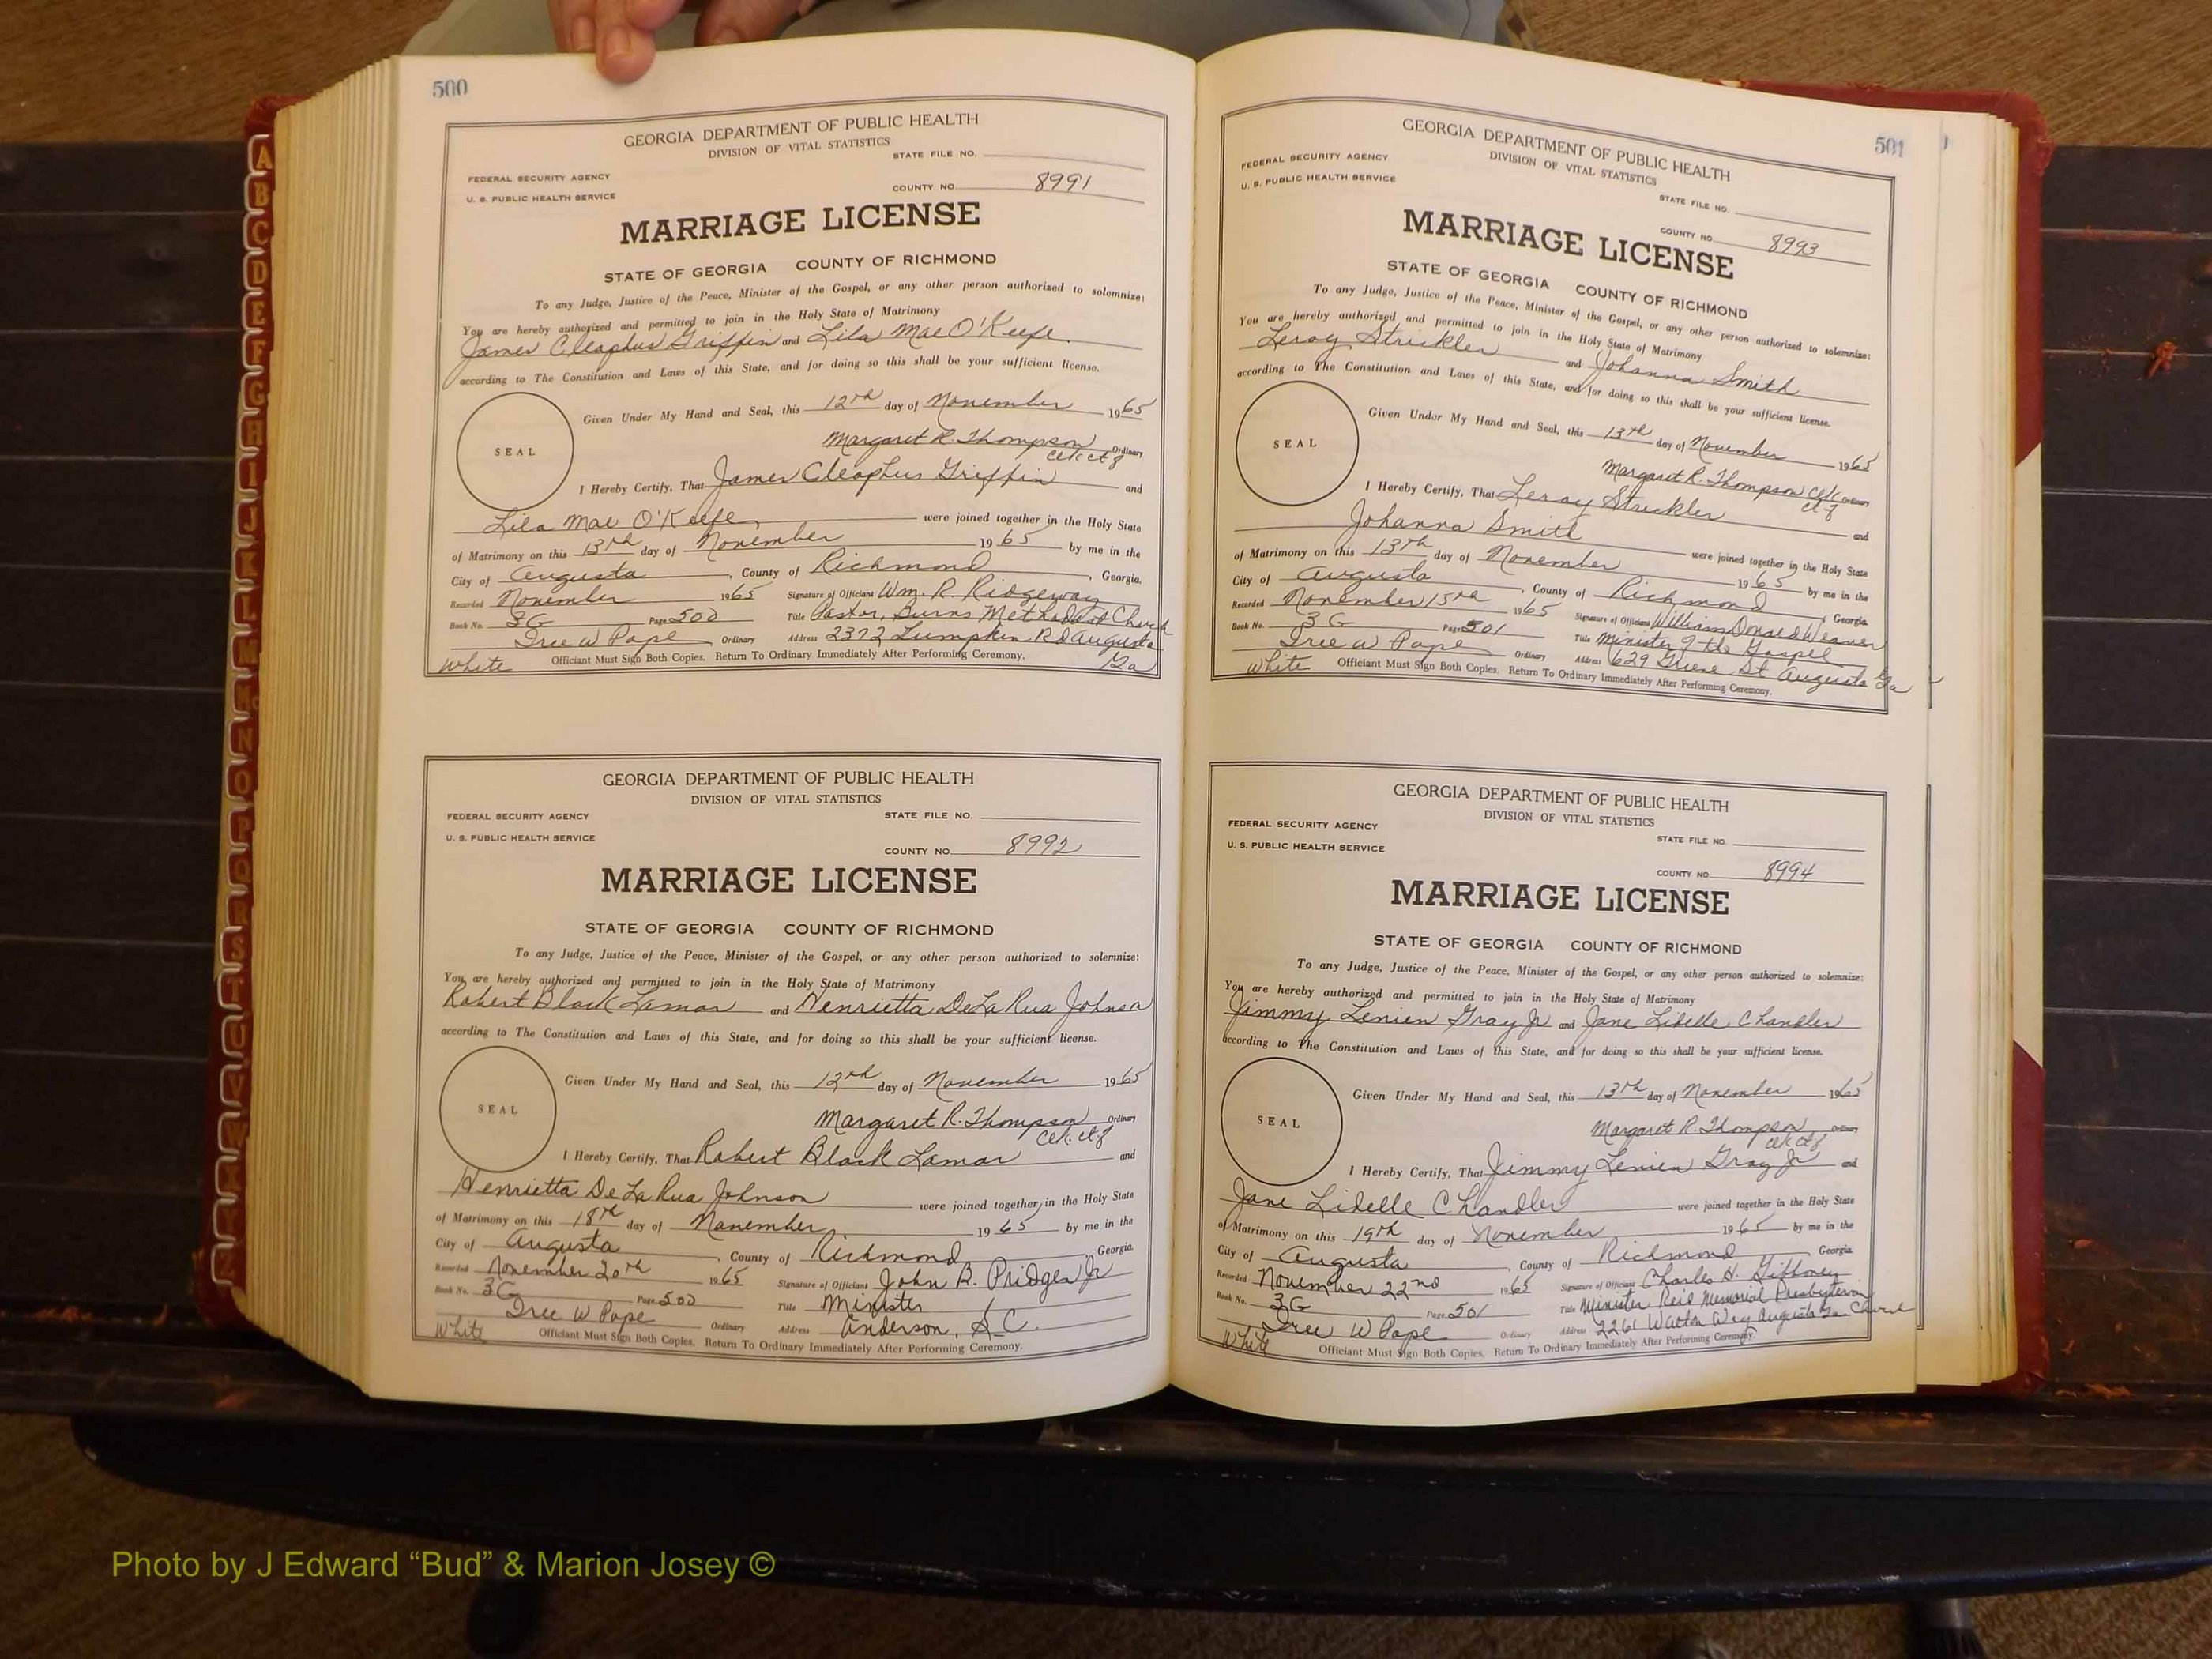 500
GEORGIA DEPARTMENT OF PUBLIC HEALTH
DIVISION OF VITAL STATISTICS
STATE FILE NO.
FEDERAL SECURITY AGENCY
U. S. PUBLIC HEALTH SERVICE
COUNTY NO. 8991
MARRIAGE LICENSE
STATE OF GEORGIA COUNTY OF RICHMOND
To any Judge, Justice of the Peace, Minister of the Gospel, or any other person authorized to solemnize:
You are hereby authorized and permitted to join in the Holy State of Matrimony
James Cleaphus Griffin and Lila Mae O'Keefe
according to The Constitution and Laws of this State, and for doing so this shall be your sufficient license.
Given Under My Hand and Seal, this 12th day of November 1965
SEAL
Margaret R. Thompson Ordinary
Clk ct of
I Hereby Certify, That James Cleophus Griffin and
Lila Mae O'Keefe were joined together in the Holy State
of Matrimony on this 13th day of November 1965 by me in the
City of Augusta, County of Richmond, Georgia.
Recorded November 1965 Signature of Officiant Wm. R. Ridgeway
Book No. 3G Page 500 Title Pastor, Burns Methodist Church
Tree W Pope Ordinary Address 2372 Lumpkin Rd Augusta
Ga
White Officiant Must Sign Both Copies. Return To Ordinary Immediately After Performing Ceremony.
GEORGIA DEPARTMENT OF PUBLIC HEALTH
DIVISION OF VITAL STATISTICS
FEDERAL SECURITY AGENCY STATE FILE NO.
U. S. PUBLIC HEALTH SERVICE
COUNTY NO. 8992
MARRIAGE LICENSE
STATE OF GEORGIA COUNTY OF RICHMOND
To any Judge, Justice of the Peace, Minister of the Gospel, or any other person authorized to solemnize:
You are hereby authorized and permitted to join in the Holy State of Matrimony
Robert Black Lamar and Henrietta DeLaRua Johnson
according to The Constitution and Laws of this State, and for doing so this shall be your sufficient license.
Given Under My Hand and Seal, this 12th day of November 1965
SEAL
Margaret R. Thompson Ordinary
Clk. ct of
I Hereby Certify, That Robert Black Lamar and
Henrietta DeLaRua Johnson were joined together in the Holy State
of Matrimony on this 18th day of November 1965 by me in the
City of Augusta, County of Richmond, Georgia.
Recorded November 20th 1965 Signature of Officiant John B. Pridgen Jr
Book No. 3G Page 500 Title Minister
Tree W Pope Ordinary Address Anderson, S.C.
White Officiant Must Sign Both Copies. Return To Ordinary Immediately After Performing Ceremony.
501
GEORGIA DEPARTMENT OF PUBLIC HEALTH
DIVISION OF VITAL STATISTICS
FEDERAL SECURITY AGENCY
U. S. PUBLIC HEALTH SERVICE
STATE FILE NO.
COUNTY NO. 8993
MARRIAGE LICENSE
STATE OF GEORGIA COUNTY OF RICHMOND
To any Judge, Justice of the Peace, Minister of the Gospel, or any other person authorized to solemnize:
You are hereby authorized and permitted to join in the Holy State of Matrimony
Leroy Strickler and Johanna Smith
according to The Constitution and Laws of this State, and for doing so this shall be your sufficient license.
Given Under My Hand and Seal, this 13th day of November 1965
SEAL
Margaret R. Thompson Clk Ordinary
ct of
I Hereby Certify, That Leroy Strickler and
Johanna Smith were joined together in the Holy State
of Matrimony on this 13th day of November 1965 by me in the
City of Augusta, County of Richmond, Georgia
Recorded November 15th 1965 Signature of Officiant William Donald Weaver
Book No. 3G Page 501 Title Minister of the Gospel
Tree W Pope Ordinary Address 629 Greene St Augusta Ga
White Officiant Must Sign Both Copies. Return To Ordinary Immediately After Performing Ceremony.
GEORGIA DEPARTMENT OF PUBLIC HEALTH
DIVISION OF VITAL STATISTICS
FEDERAL SECURITY AGENCY
STATE FILE NO.
U. S. PUBLIC HEALTH SERVICE
COUNTY NO. 8994
MARRIAGE LICENSE
STATE OF GEORGIA COUNTY OF RICHMOND
To any Judge, Justice of the Peace, Minister of the Gospel, or any other person authorized to solemnize:
You are hereby authorized and permitted to join in the Holy State of Matrimony
Jimmy Lenien Gray Jr and Jane Lidelle Chandler
according to The Constitution and Laws of this State, and for doing so this shall be your sufficient license.
Given Under My Hand and Seal, this 13th day of November 1965
SEAL
Margaret R. Thompson Ordinary
Clk ct of
I Hereby Certify, That Jimmy Lenien Gray Jr and
Jane Lidelle Chandler were joined together in the Holy State
of Matrimony on this 19th day of November 1965 by me in the
City of Augusta, County of Richmond, Georgia
Recorded November 22nd 1965 Signature of Officiant Charles H. Gibboney
Book No. 3G Page 501 Title Minister Reid Memorial Presbyterian Church
Tree W Pope Ordinary Address 2261 Walton Way Augusta Ga
White Officiant Must Sign Both Copies. Return To Ordinary Immediately After Performing Ceremony.
A
B
C
D
E
F
G
H
I
J
K
L
M
Mc
N
O
P
Q
R
S
T
U
V
W
Photo by J Edward “Bud” & Marion Josey ©